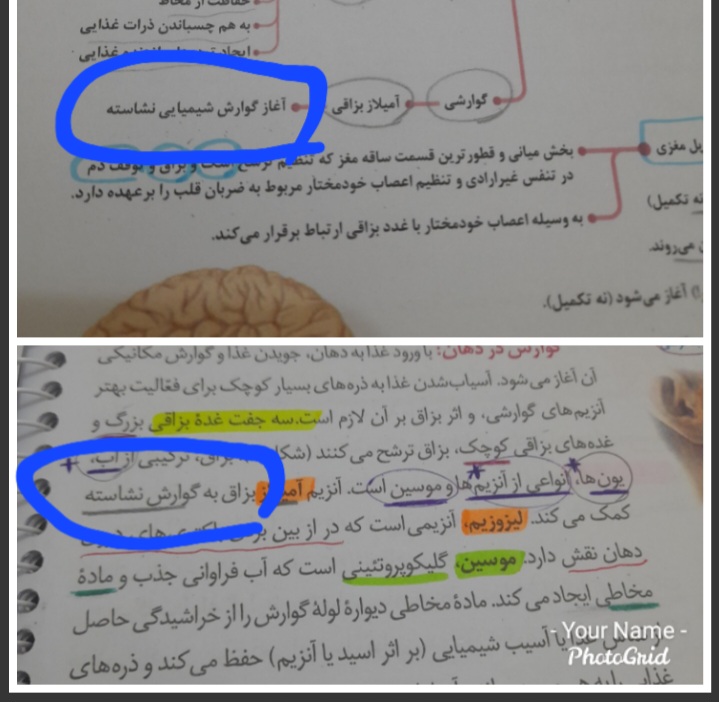 حفاظت از مخاط
به هم چسباندن ذرات غذایی
ایجاد غذایی
گوارشی
آمیلاز بزاقی
آغاز گوارش شیمیایی نشاسته
پل مغزی
بخش میانی و قطورترین قسمت ساقه مغز که تنظیم ترشح اشک و بزاق و توقف دم
در تنفس غیرارادی و تنظیم اعصاب خودمختار مربوط به ضربان قلب را برعهده دارد.
به وسیله اعصاب خودمختار با غدد بزاقی ارتباط برقرار می‌کند.
نه تکمیل)
می‌روند.
آغاز می‌شود (نه تکمیل).
گوارش در دهان: با ورود غذا به دهان، جویدن غذا و گوارش مکانیکی
آن آغاز می شود. آسیاب‌شدن غذا به ذره‌های بسیار کوچک برای فعّالیت بهتر
آنزیم‌های گوارشی، و اثر بزاق بر آن لازم است. سه جفت غدهٔ بزاقی بزرگ و
غده‌های بزاقی کوچک، بزاق ترشح می کنند (شکل بزاق، ترکیبی از آب،
یون‌ها، انواعی از آنزیم‌ها و موسین است. آنزیم آمیلاز بزاق به گوارش نشاسته
کمک می کند. لیزوزیم، آنزیمی است که در از بین بردن باکتری‌های درون
دهان نقش دارد. موسین، گلیکوپروتئینی است که آب فراوانی جذب و مادهٔ
مخاطی ایجاد می کند. مادهٔ مخاطی دیوارهٔ لولهٔ گوارش را از خراشیدگی حاصل
از تماس غذا یا آسیب شیمیایی (بر اثر اسید یا آنزیم) حفظ می کند و ذره‌های
غذایی را به هم
- Your Name -
PhotoGrid